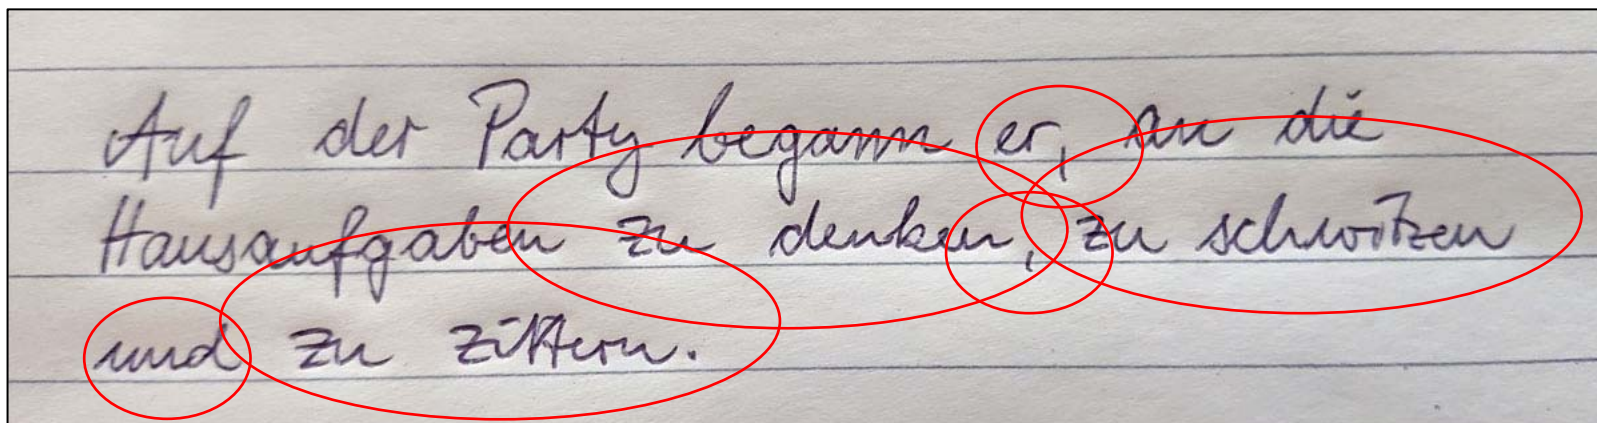 Auf der Party begann er, an die
Hausaufgaben zu denken, zu schwitzen
und zu zittern.